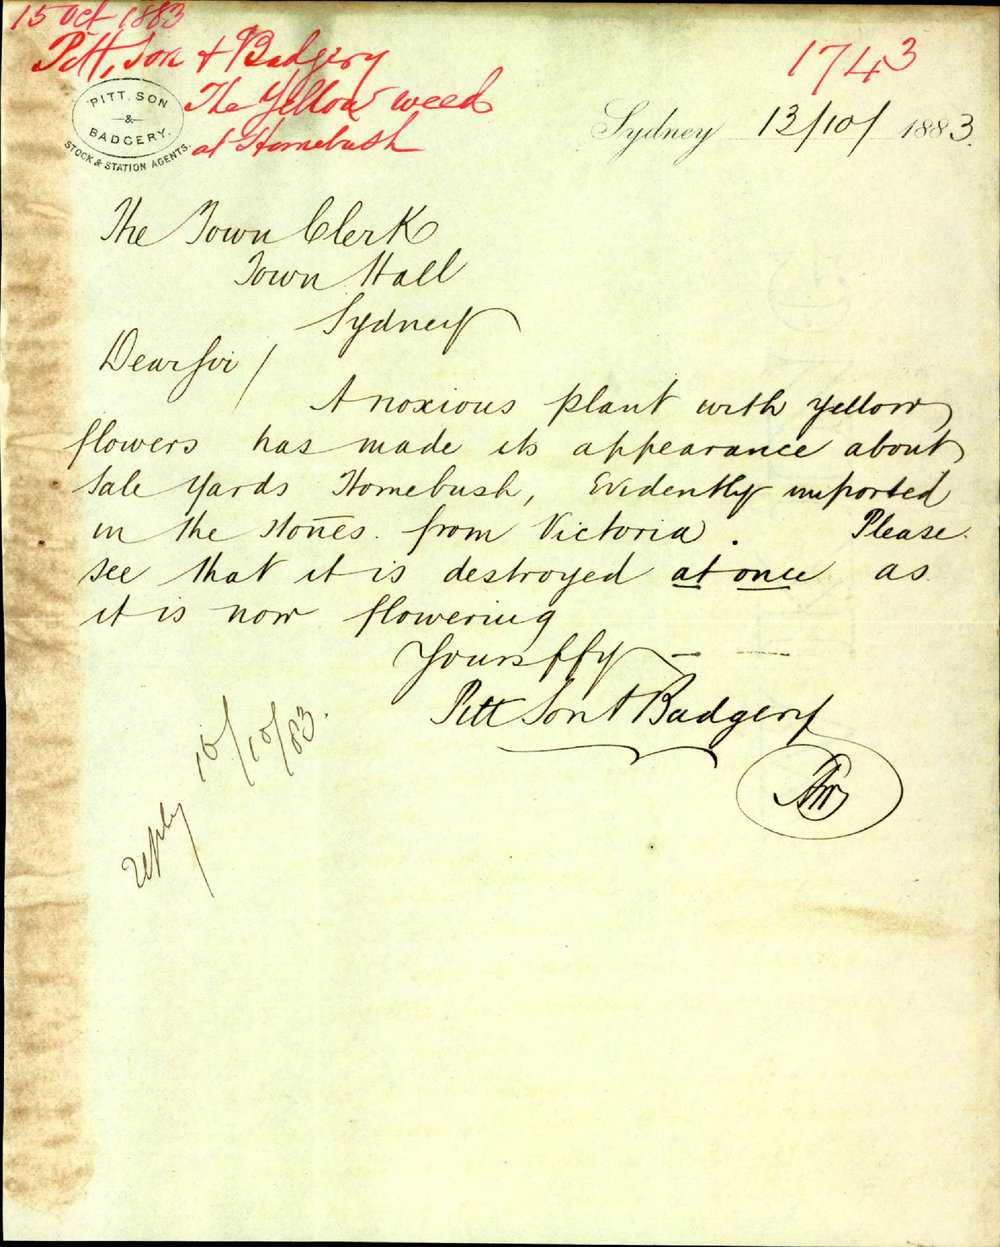 15 Oct 1883
Pitt, Son & Badgery
The Yellow weed
at Homebush
1743
PITT, SON
-&-
BADGERY.
STOCK & STATION AGENTS.
Sydney 13/10/ 1883.
The Town Clerk
Town Hall
Sydney
Dear Sir /
A noxious plant with yellow
flowers has made its appearance about
Sale Yards Homebush, Evidently imported
in the stones from Victoria. Please
see that it is destroyed at once as
it is now flowering
Yours ffy
Pitt Son & Badgery
Reply 16/10/83.